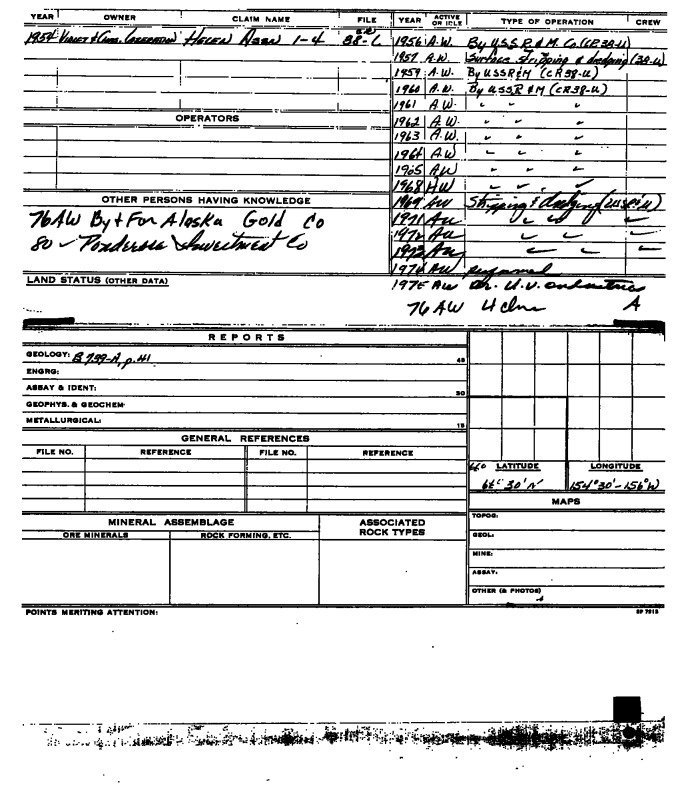 YEAR OWNER CLAIM NAME FILE
1954 Helen Assn 1-4 38-6
OPERATORS
OTHER PERSONS HAVING KNOWLEDGE
76 AW By & For Alaska Gold Co
80 - Ponderosa Investment Co
LAND STATUS (OTHER DATA)
YEAR ACTIVE OR IDLE TYPE OF OPERATION CREW
1956 A.W. By U.S.S.R. & M. Co. (CR 38-U)
1957 A.W. Surface Stripping & dredging (38-U)
1959 A.W. By USSR&M (CR 38-U)
1960 A.W. By U.S.S.R & M (CR 38-U)
1961 A.W. " " "
1962 A.W. " " "
1963 A.W. " " "
1964 A.W. " " "
1965 AW " " "
1968 AW " " "
1969 AW Stripping & dredging
1971 AW " " "
1972 AW " " "
1973 AW " " "
1974 AW
1975 AW U.V.
76 AW 4 clms A
REPORTS
GEOLOGY: B 739-A, p. 41 45
ENGRG:
ASSAY & IDENT: 30
GEOPHYS. & GEOCHEM.
METALLURGICAL: 15
GENERAL REFERENCES
FILE NO. REFERENCE FILE NO. REFERENCE
LATITUDE LONGITUDE
30' N 154°30' - 156° W
MAPS
TOPOG:
GEOL:
MINE:
ASSAY:
OTHER (& PHOTOS)
MINERAL ASSEMBLAGE ASSOCIATED ROCK TYPES
ORE MINERALS ROCK FORMING, ETC.
POINTS MERITING ATTENTION: